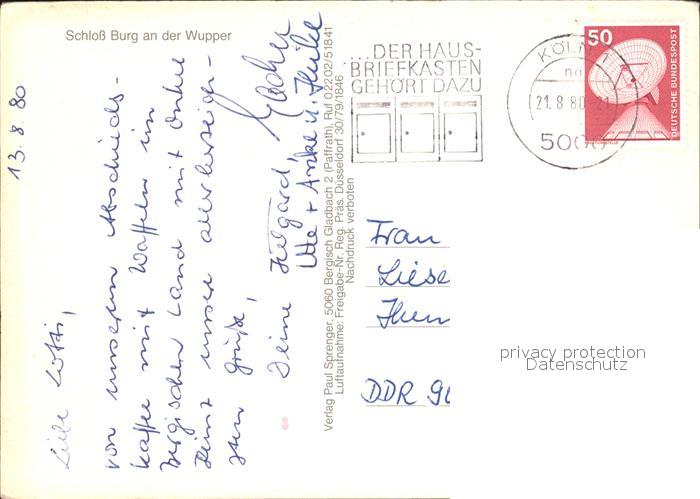 Schloß Burg an der Wupper
13. 8. 80
Liebe Lotti,
von unserem Abschieds-
kaffee mit Waffeln im
Bergischen Land mit Onkel
Heinz unsere allerherzlich-
sten Grüße,
Deine Hildgard,
Ute + Anke u. Heike
Verlag Paul Sprenger, 5060 Bergisch Gladbach 2 (Paffrath), Ruf 02202/51841
Luftaufnahme: Freigabe-Nr. Reg. Präs. Düsseldorf 30/79/1846
Nachdruck verboten
...DER HAUS-
BRIEFKASTEN
GEHÖRT DAZU
KÖLN 1
na
21.8.80-21
5000
50
DEUTSCHE BUNDESPOST
Frau
Liese
DDR 90
privacy protection
Datenschutz